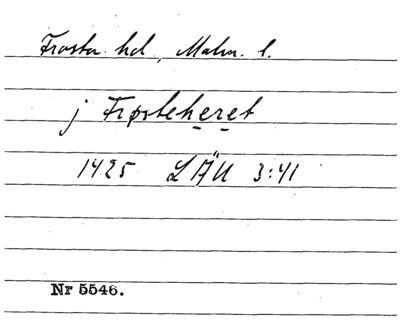 Frosta hd, Malm. l.
j Frosteheret
1425 LÄU 3:41
Nr 5546.